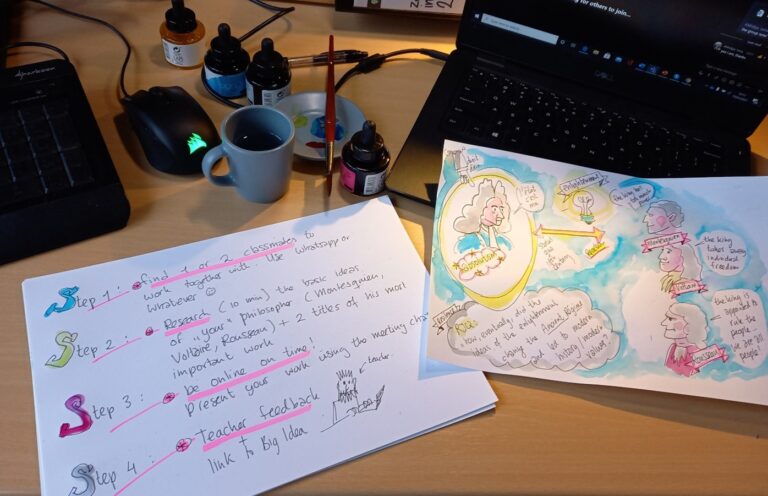 Step 1: find 1 or 2 classmates to
work together with. Use Whatsapp or
whatever
Step 2: Research (10 min) the basic ideas
of "your" philosopher (Montesquieu,
Voltaire, Rousseau) + 2 titles of his most
important work
Step 3: be online on time!
Present your work using the meeting cha
teacher
Step 4: Teacher feedback
link to Big Idea
for others to join...
DELL
l'état
c'est moi
Absolutism
Enlightenment
the king has
too much
Montesquieu
the king
takes away
individual
freedom
Voltaire
the king is
appointed to
rule the
people
we are all
people!
Rousseau
how, eventually, did the
ideas of the enlightenment
change the Ancient Regime
and led to modern
history / modern
values?